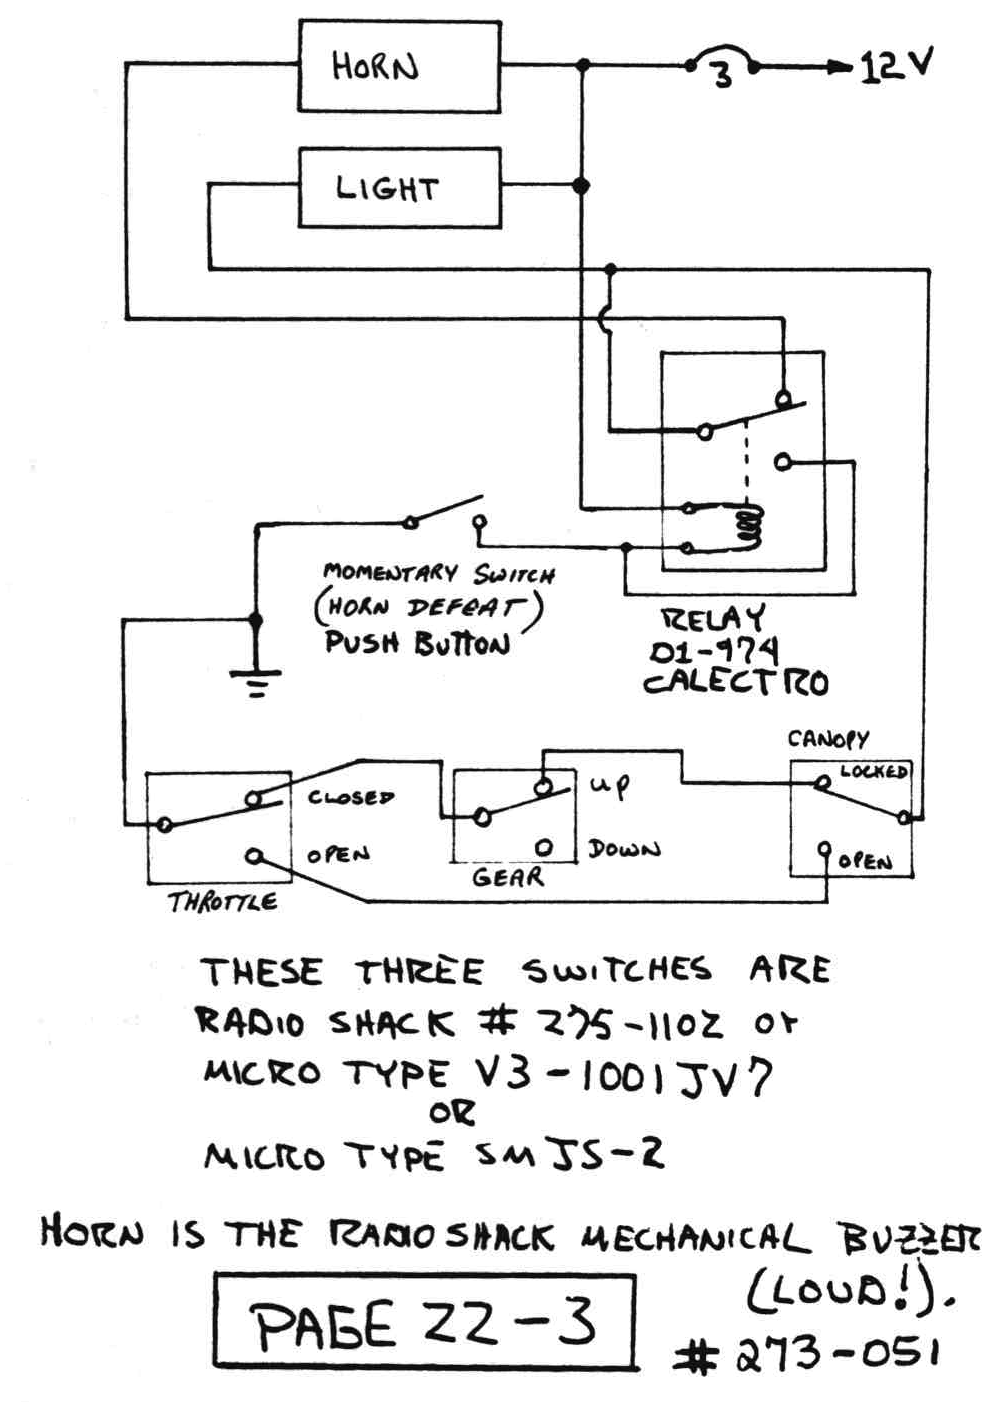 HORN
3
12V
LIGHT
MOMENTARY SWITCH
(HORN DEFEAT)
PUSH BUTTON
RELAY
D1-974
CALECTRO
CANOPY
LOCKED
OPEN
CLOSED
OPEN
THROTTLE
UP
DOWN
GEAR
THESE THREE SWITCHES ARE
RADIO SHACK # 275-1102 or
MICRO TYPE V3-1001JV7
OR
MICRO TYPE SMJS-2
HORN IS THE RADIO SHACK MECHANICAL BUZZER
(LOUD!).
# 273-051
PAGE 22-3